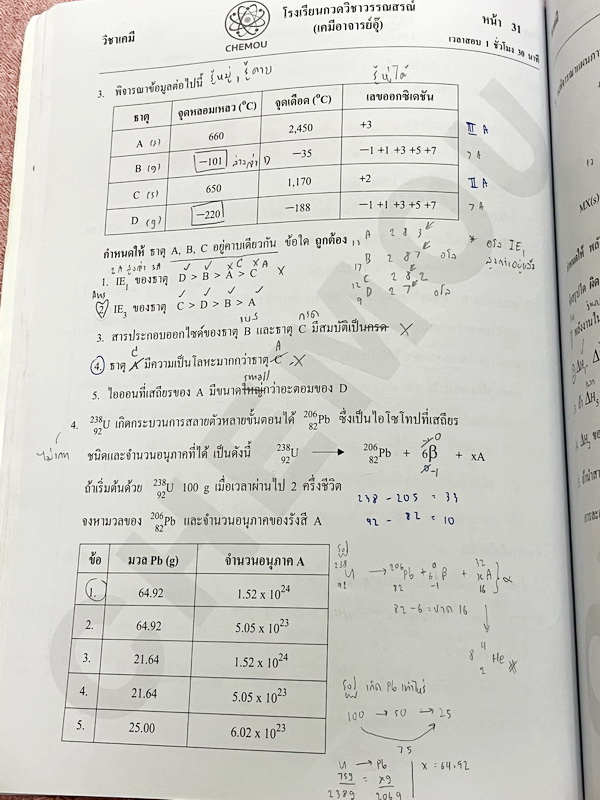 วิชาเคมี
CHEMOU
โรงเรียนกวดวิชาวรรณสรณ์
(เคมีอาจารย์อุ๊)
หน้า 31
เวลาสอบ 1 ชั่วโมง 30 นาที
3. พิจารณาข้อมูลต่อไปนี้ รู้หมู่, รู้คาบ
รู้หมู่ได้
ธาตุ จุดหลอมเหลว (°C) จุดเดือด (°C) เลขออกซิเดชัน
A (s) 660 2,450 +3 III A
B (g) −101 −35 −1 +1 +3 +5 +7 7A
C (s) 650 1,170 +2 II A
D (g) −220 −188 −1 +1 +3 +5 +7 7A
กำหนดให้ ธาตุ A, B, C อยู่คาบเดียวกัน ข้อใด ถูกต้อง
13 A 2 8 3
17 B 2 8 7
12 C 2 8 2
9 D 2 7
1. IE₁ ของธาตุ D > B > A > C X
Ans 2. IE₃ ของธาตุ C > D > B > A
3. สารประกอบออกไซด์ของธาตุ B และธาตุ C มีสมบัติเป็นกรด X
4. ธาตุ A มีความเป็นโลหะมากกว่าธาตุ C X
small
5. ไอออนที่เสถียรของ A มีขนาดใหญ่กว่าอะตอมของ D
4. ²³⁸₉₂U เกิดกระบวนการสลายตัวหลายขั้นตอนได้ ²⁰⁶₈₂Pb ซึ่งเป็นไอโซโทปที่เสถียร
ชนิดและจำนวนอนุภาคที่ได้ เป็นดังนี้ ²³⁸₉₂U ⟶ ²⁰⁶₈₂Pb + 6β + xA
0
-1
ถ้าเริ่มต้นด้วย ²³⁸₉₂U 100 g เมื่อเวลาผ่านไป 2 ครึ่งชีวิต
238 - 205 = 33
จงหามวลของ ²⁰⁶₈₂Pb และจำนวนอนุภาคของรังสี A
92 - 82 = 10
ข้อ มวล Pb (g) จำนวนอนุภาค A
1. 64.92 1.52 x 10²⁴
2. 64.92 5.05 x 10²³
3. 21.64 1.52 x 10²⁴
4. 21.64 5.05 x 10²³
5. 25.00 6.02 x 10²³
82 - 6 = ขาด 16
8 ⁴₂He
เกิด Pb เท่าไหร่
100 → 50 → 25
75
U → Pb
75g = xg
238g 206g
x = 64.92